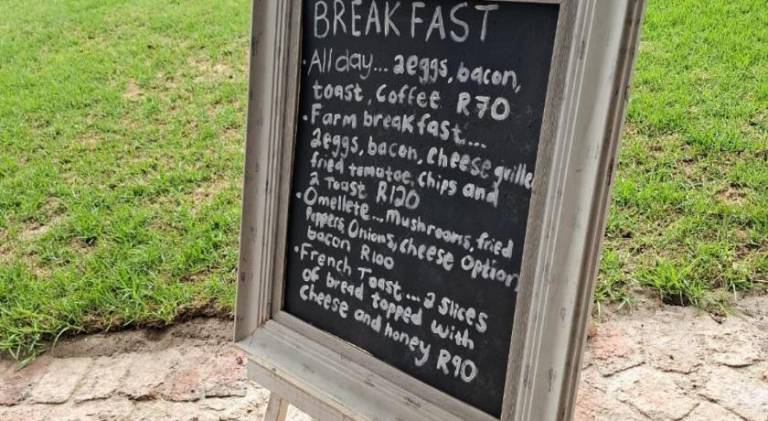 BREAKFAST
• All day... 2eggs, bacon,
toast, Coffee R70
• Farm breakfast...
2eggs, bacon, cheese grille
fried tomatoe, Chips and
2 Toast R120
• Omellete... Mushrooms, fried
Peppers, Onions, Cheese Option
bacon R100
• French Toast... 2 slices
of bread topped with
cheese and honey R90